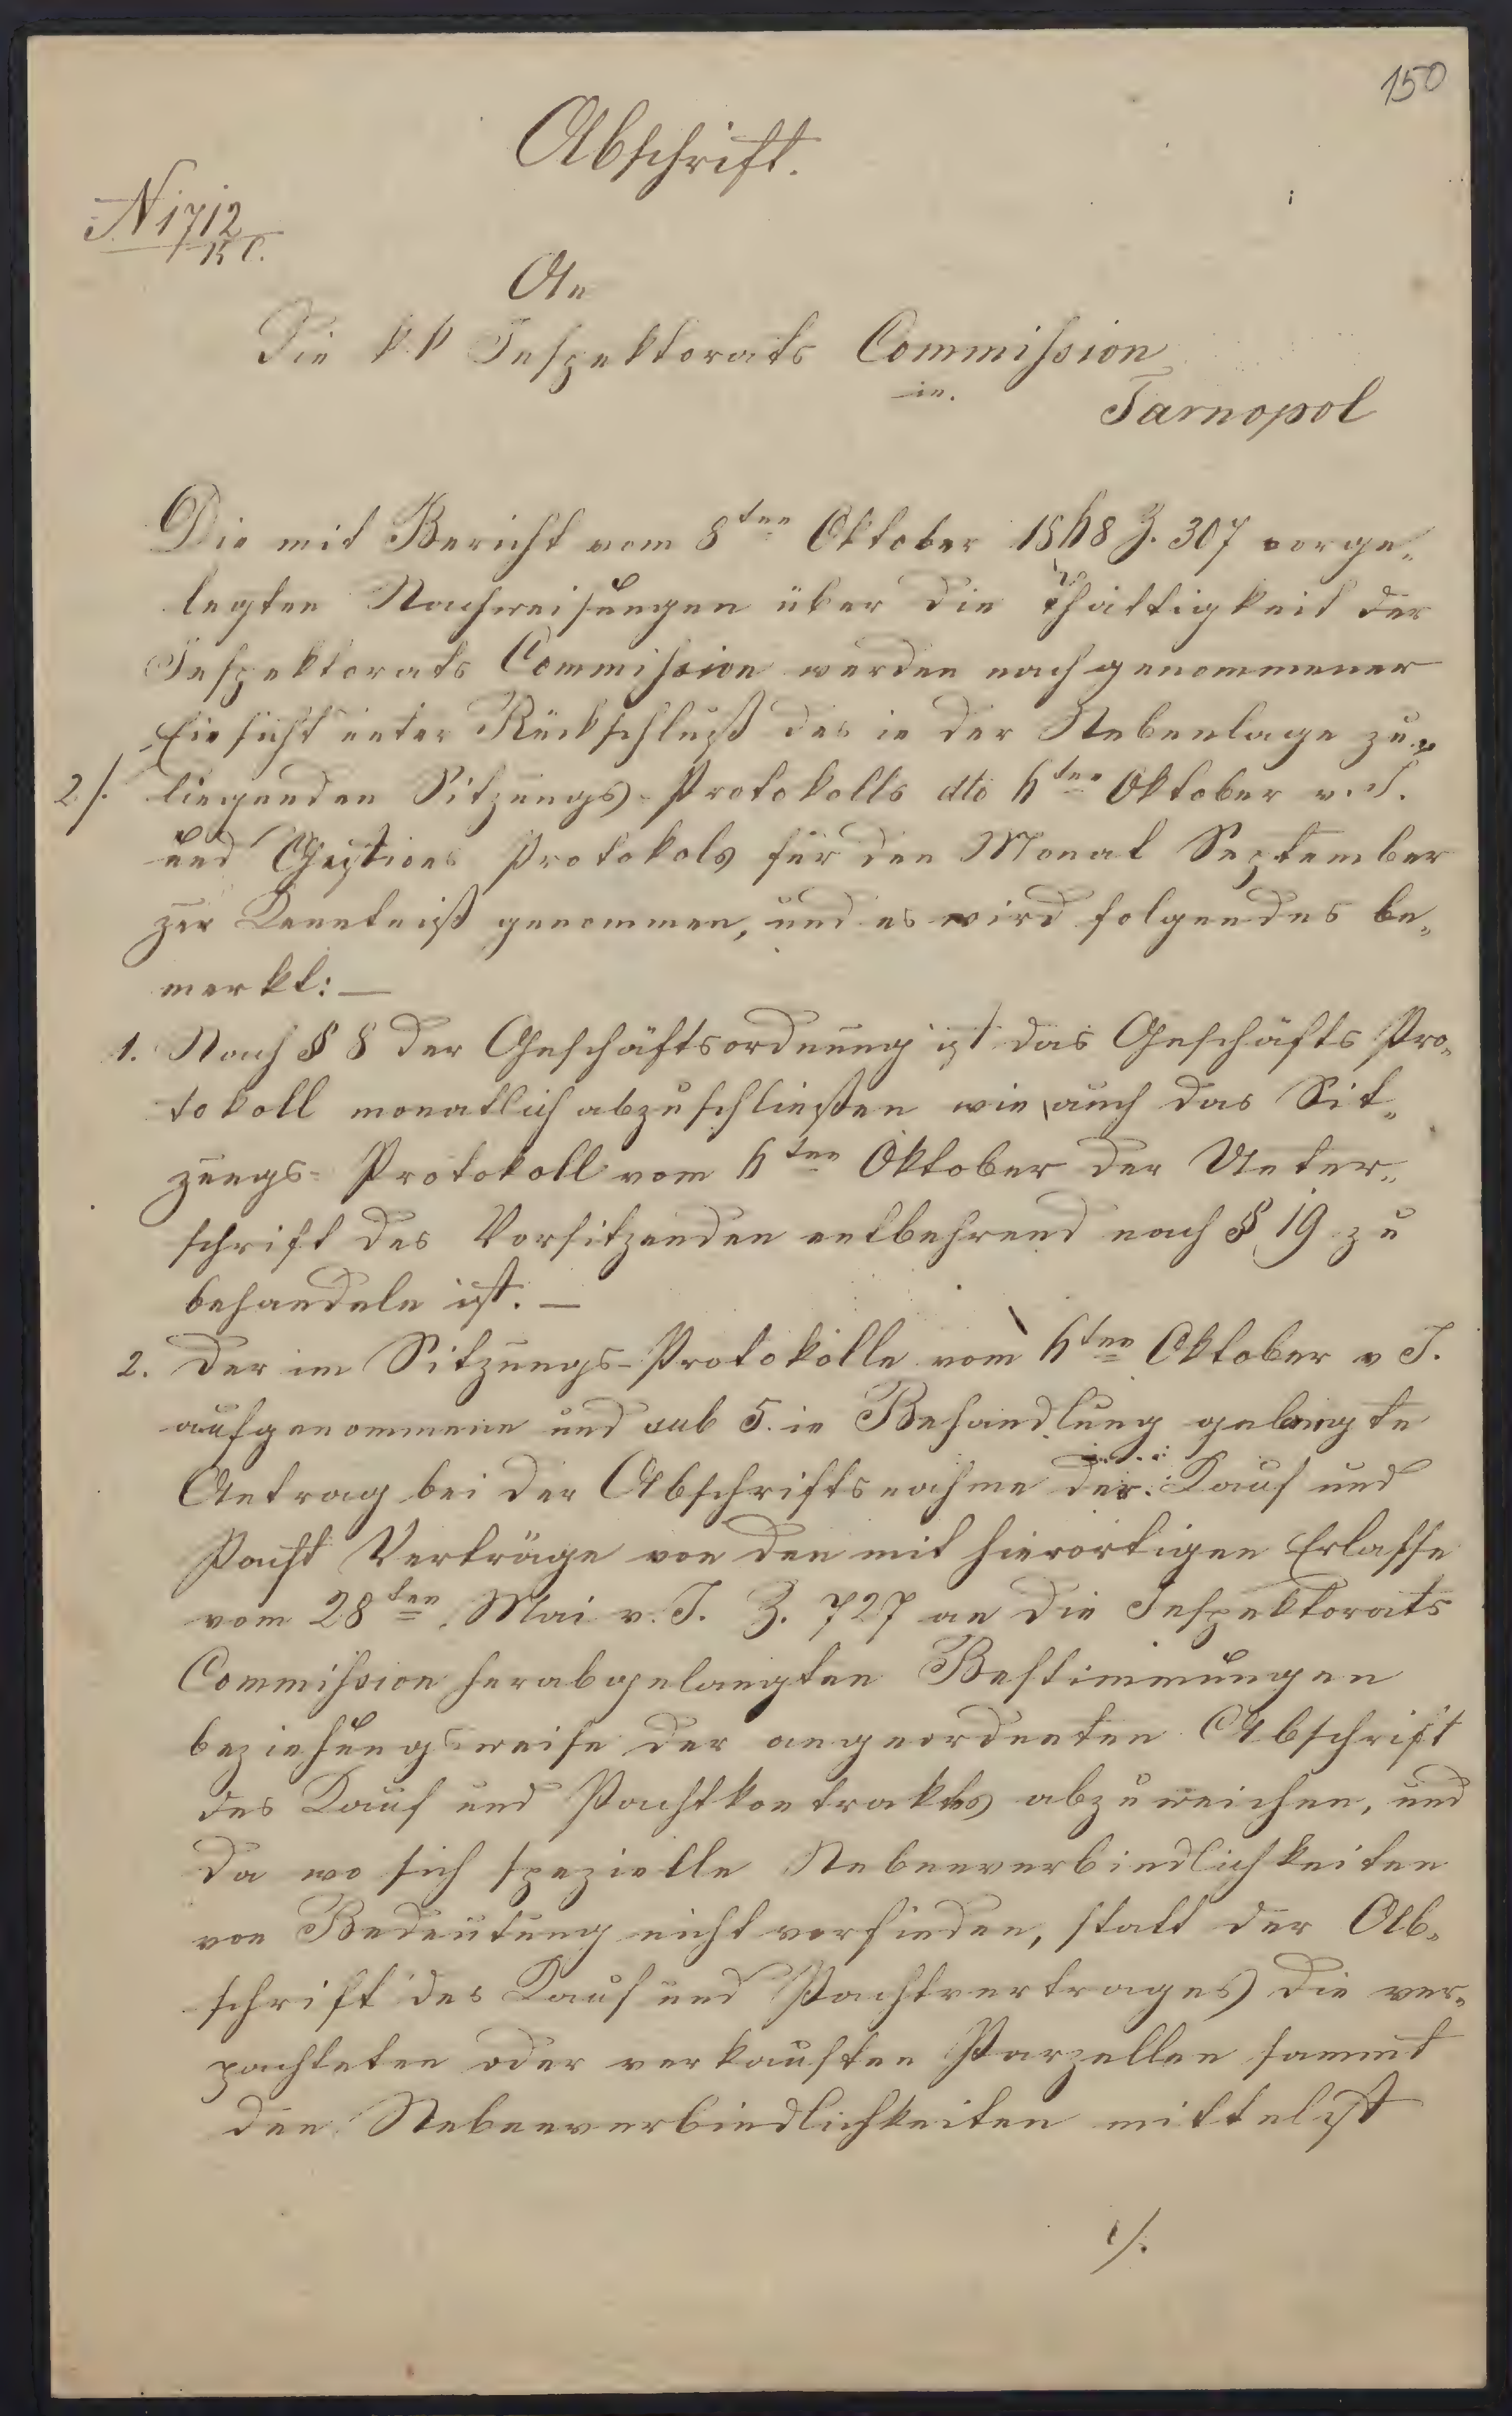 150
Abschrift.
N 1712
An
Die k k Inspektorats Commission
in
Tarnopol
Die mit Bericht vom 8ten Oktober 1848 Z. 307 vorge„
legten Nachweisungen über die Thättigkeit der
Inspektorats Commission werden nach genommener
Einsicht unter Rückschluß des in der Nebenlage zu„
2/. liegenden Sitzungs-Protokolls dto 4ten Oktober v. J.
und Gestions Protokols für den Monat September
zur Kenntniß genommen, und es wird folgendes be„
merkt: —
1. Nach § 8 der Geschäftsordnung ist das Geschäfts Pro„
tokoll monatlich abzuschließen wie auch das Sit„
zungs- Protokoll vom 4ten Oktober der Unter„
schrift des Vorsitzenden entbehrend nach § 19 zu
behandeln ist. —
2. Der im Sitzungs-Protokolle vom 4ten Oktober v J.
aufgenommene und sub 5. in Behandlung gelangte
Antrag bei der Abschriftsnahme der Kauf und
Pacht Verträge von den mit hierortigen Erlasse
vom 28ten Mai v. J. Z. 727 an die Inspektorats
Commission herabgelangten Bestimmungen
beziehungsweise der angeordneten Abschrift
des Kauf und Pachtkontraktes abzuweichen, und
da wo sich spezielle Nebenverbindlichkeiten
von Bedeutung nicht vorfinden, statt der Ab„
schrift des Kauf und Pachtvertrages die ver„
pachteten oder verkauften Parzellen sammt
den Nebenverbindlichkeiten mittelst
./.